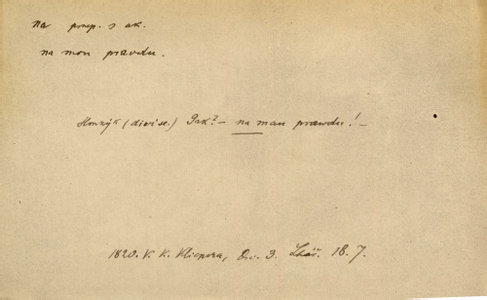 na prep. s ak.
na mou pravdu.
(diví se.) Jak? – na mau prawdu! –
1820. V. K. Klicpera, Div. 3. Lhář. 18. 7.